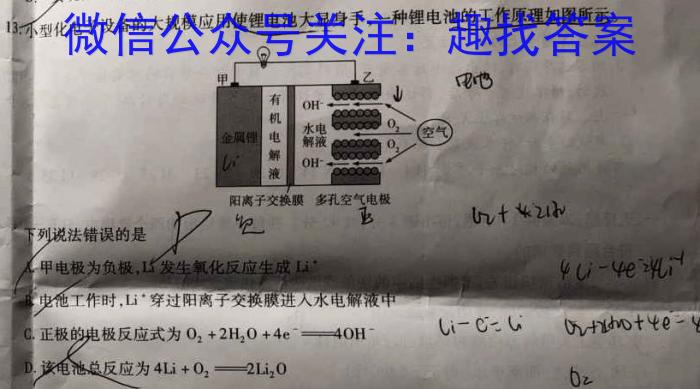 13.小型化电 设备的大规模应用使锂电池大显身手,一种锂电池的工作原理如图所示,
微信公众号关注：趣找答案
甲
乙
金属锂
Li
有机电解液
OH⁻
水电解液
OH⁻
O₂
O₂
空气
电池
阳离子交换膜 多孔空气电极
下列说法错误的是
A.甲电极为负极,Li发生氧化反应生成Li⁺
B.电池工作时,Li⁺穿过阳离子交换膜进入水电解液中
C.正极的电极反应式为O₂+2H₂O+4e⁻══4OH⁻
D.该电池总反应为4Li+O₂══2Li₂O
4Li-4e⁻=4Li⁺
O₂